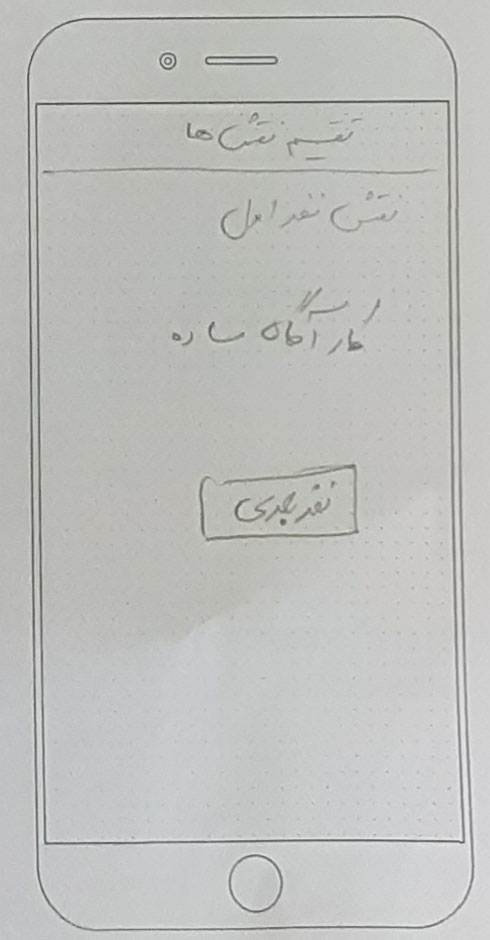 تقسیم نقش ها
نقش نفر اول
کارآگاه ساده
نفر بعدی